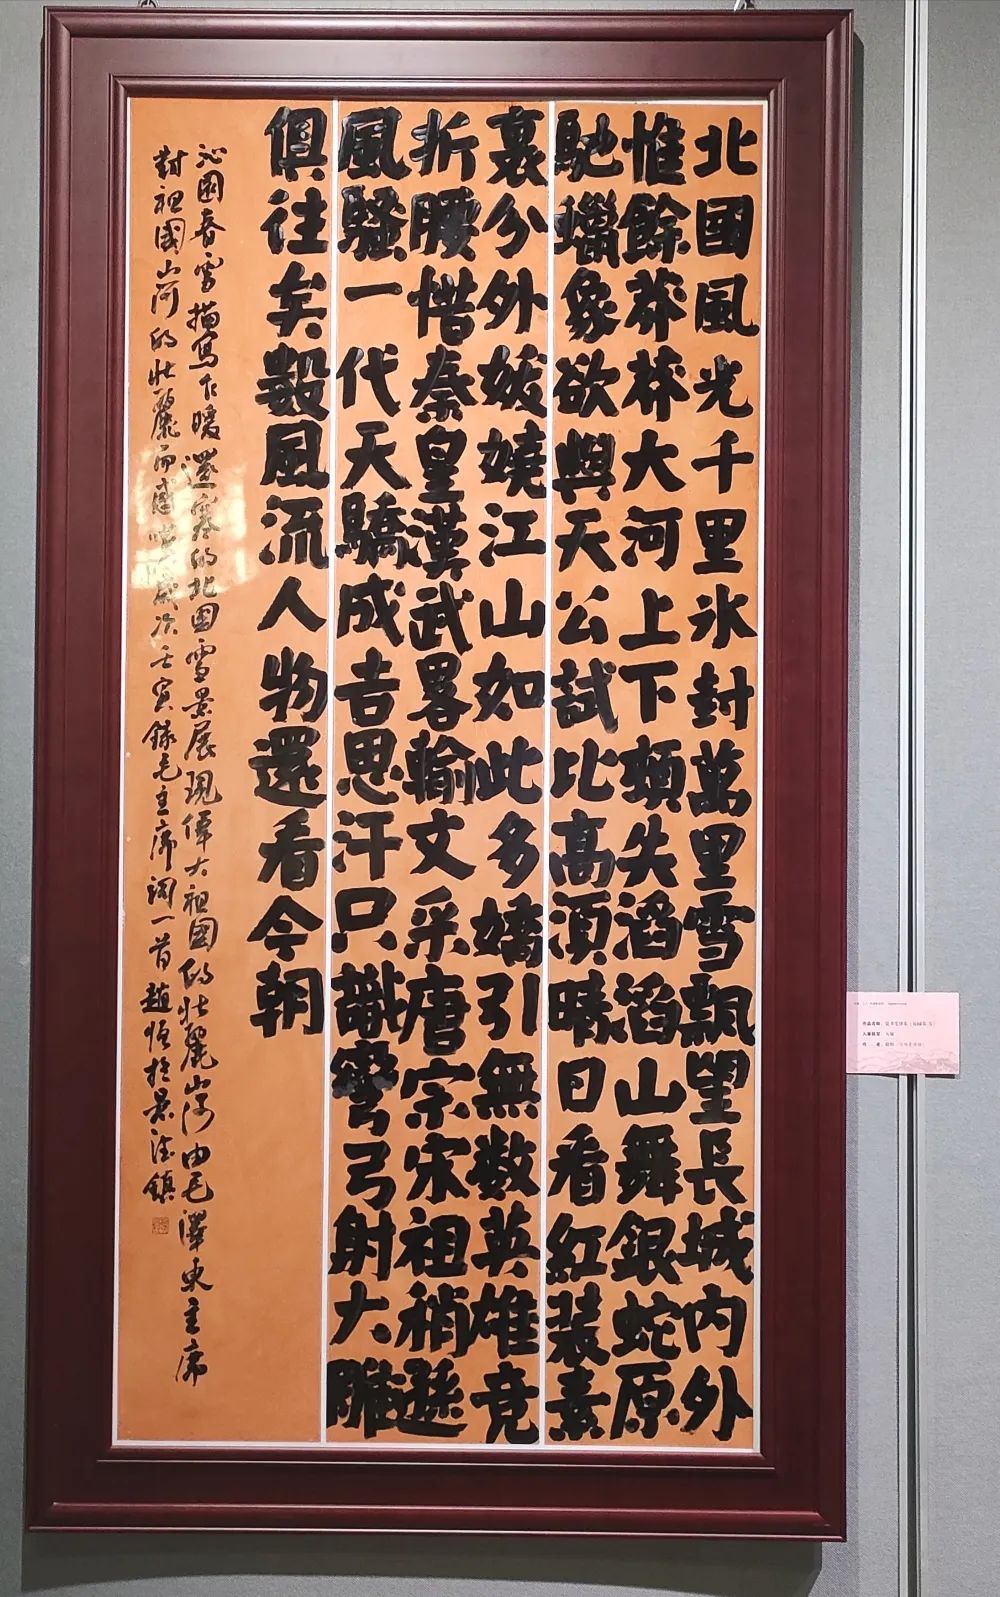 北國風光千里氷封萬里雪飄望長城内外
惟餘莽莽大河上下頓失滔滔山舞銀蛇原
馳蠟象欲與天公試比高須晴日看紅裝素
裹分外妖嬈江山如此多嬌引無数英雄竞
折腰惜秦皇漢武畧輸文采唐宗宋祖稍遜
風騷一代天驕成吉思汗只識彎弓射大雕
俱往矣數風流人物還看今朝
沁園春雪描寫乍暖還寒的北國雪景展現偉大祖國的壯麗山河由毛澤東主席
對祖國山河的壯麗而感嘆歲次壬寅錄毛主席詞一首趙恒於景德鎮